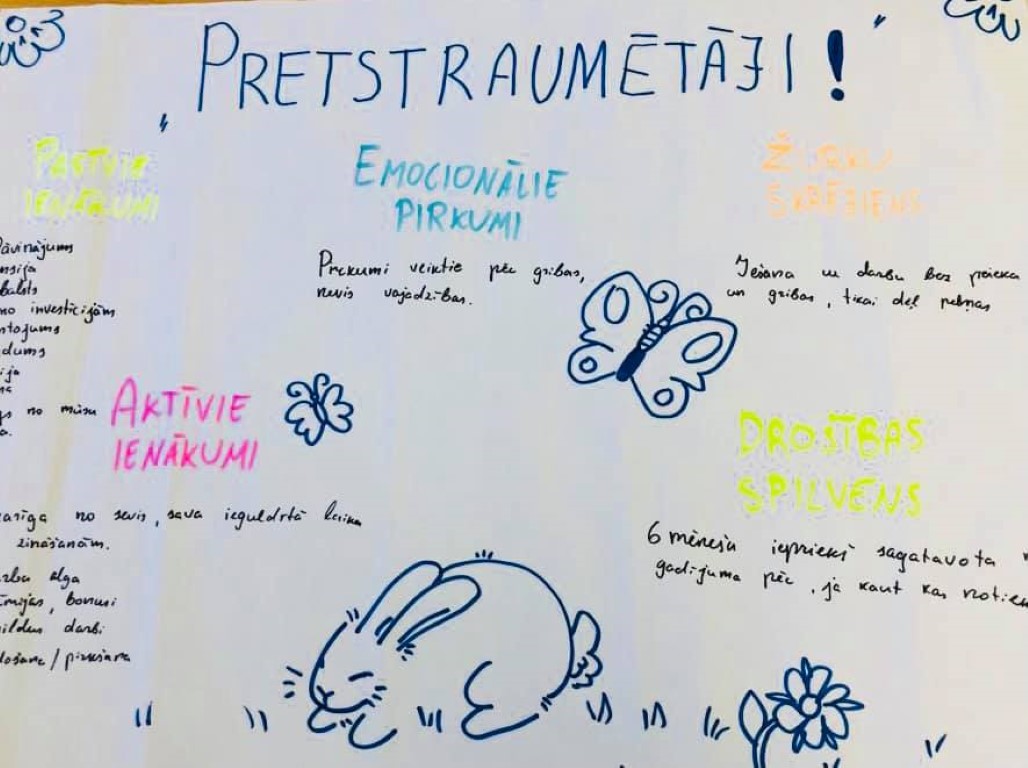 PRETSTRAUMĒTĀJI!
PASĪVIE
IENĀKUMI
āvinājums
nsija
balsts
no investīcijām
ntojums
dums
ija
no mūsu
a.
EMOCIONĀLIE
PIRKUMI
Pirkumi veiktie pēc gribas,
nevis vajadzības.
ŽURKU
SKRĒJIENS
Iešana uz darbu bez prieka
un gribas, tikai dēļ peļņas
AKTĪVIE
IENĀKUMI
no sevis, sava ieguldītā laika
zināšanām.
alga
bonusi
ildus darbi
došana / pirkšana
DROŠĪBAS
SPILVENS
6 mēneša iepriekš sagatavota
gadījuma pēc, ja kaut kas notiek